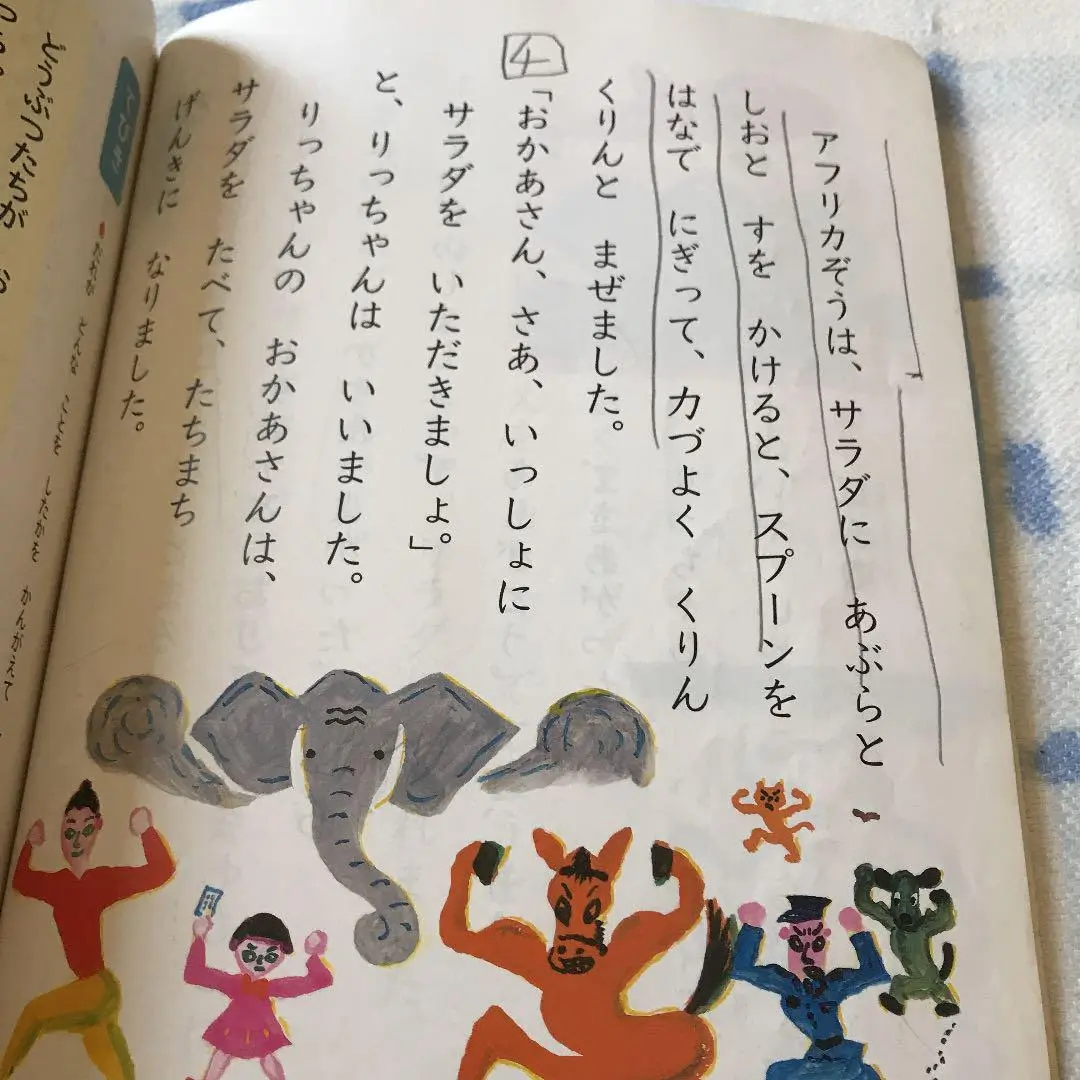 アフリカぞうは、サラダに あぶらと
しおと すを かけると、スプーンを
はなで にぎって、力づよく くりん
くりんと まぜました。
4
「おかあさん、さあ、いっしょに
サラダを いただきましょ。」
と、りっちゃんは いいました。
りっちゃんの おかあさんは、
サラダを たべて、たちまち
げんきに なりました。
だれが どんな ことを したかを かんがえて
どうぶつたちが